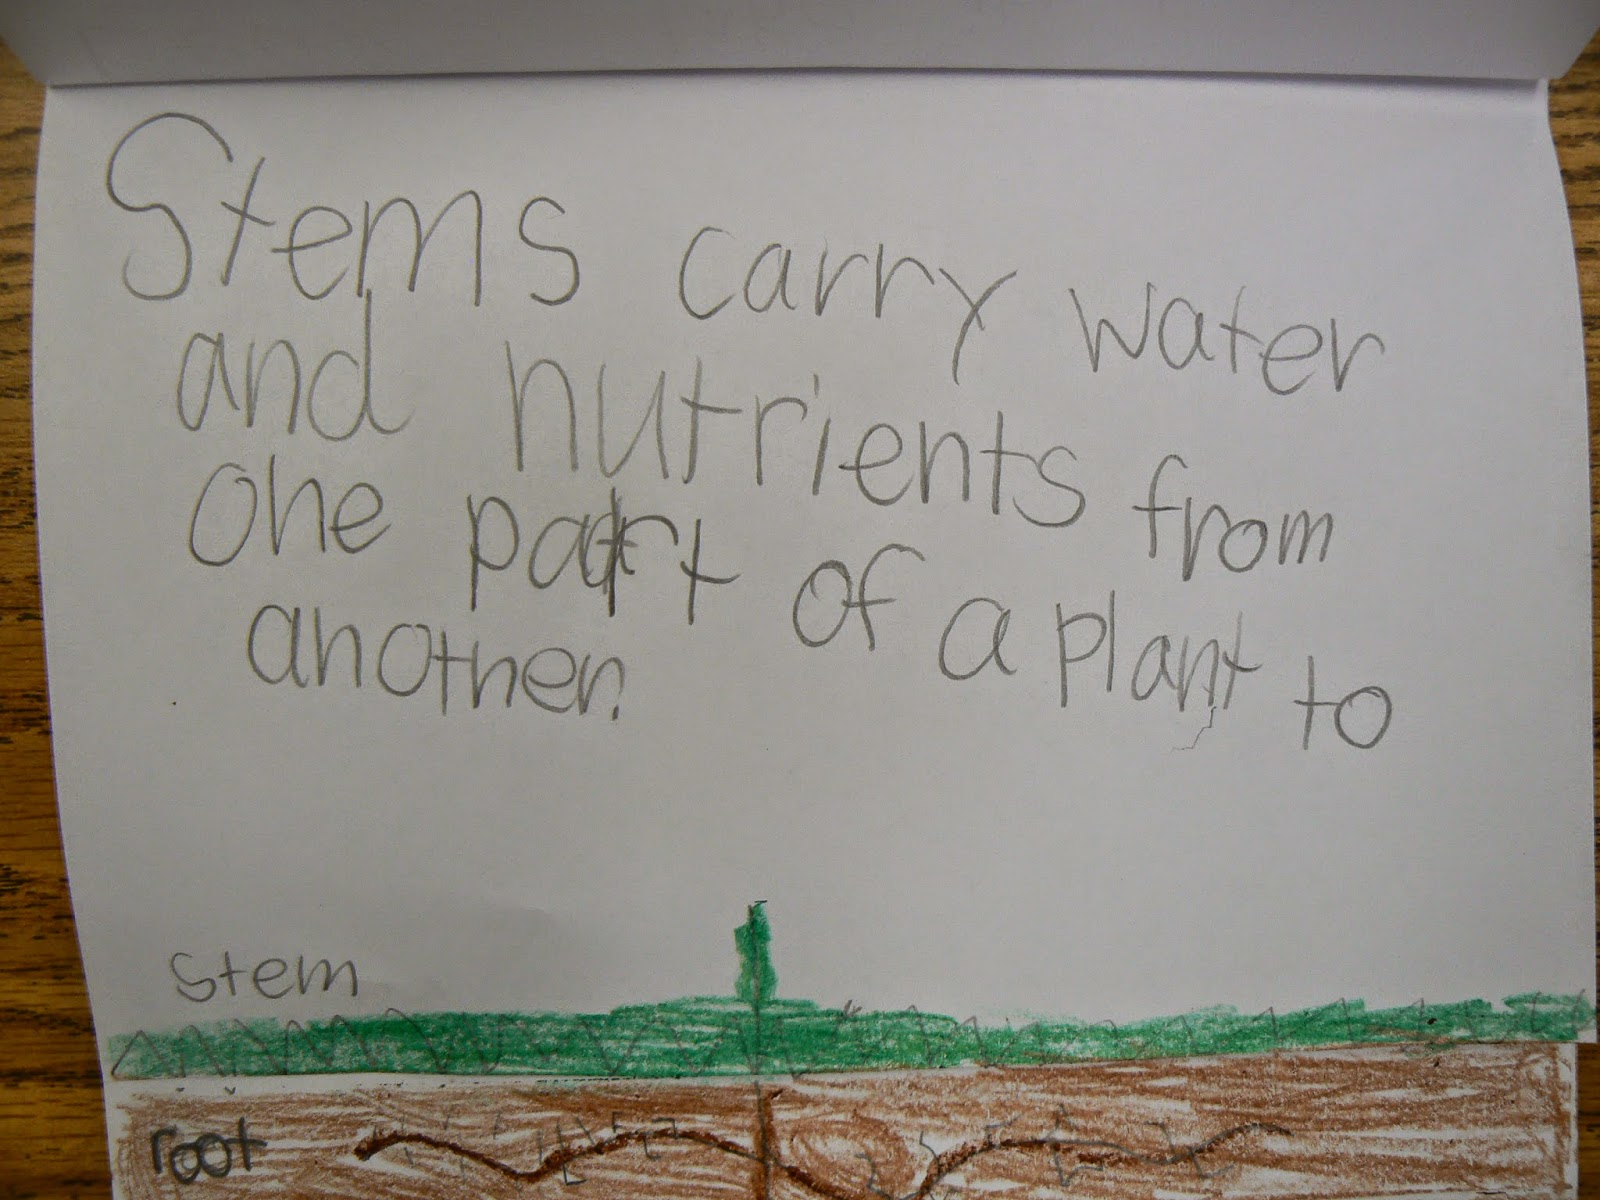 Stems carry water
and nutrients from
one part of a plant to
another.
stem
root